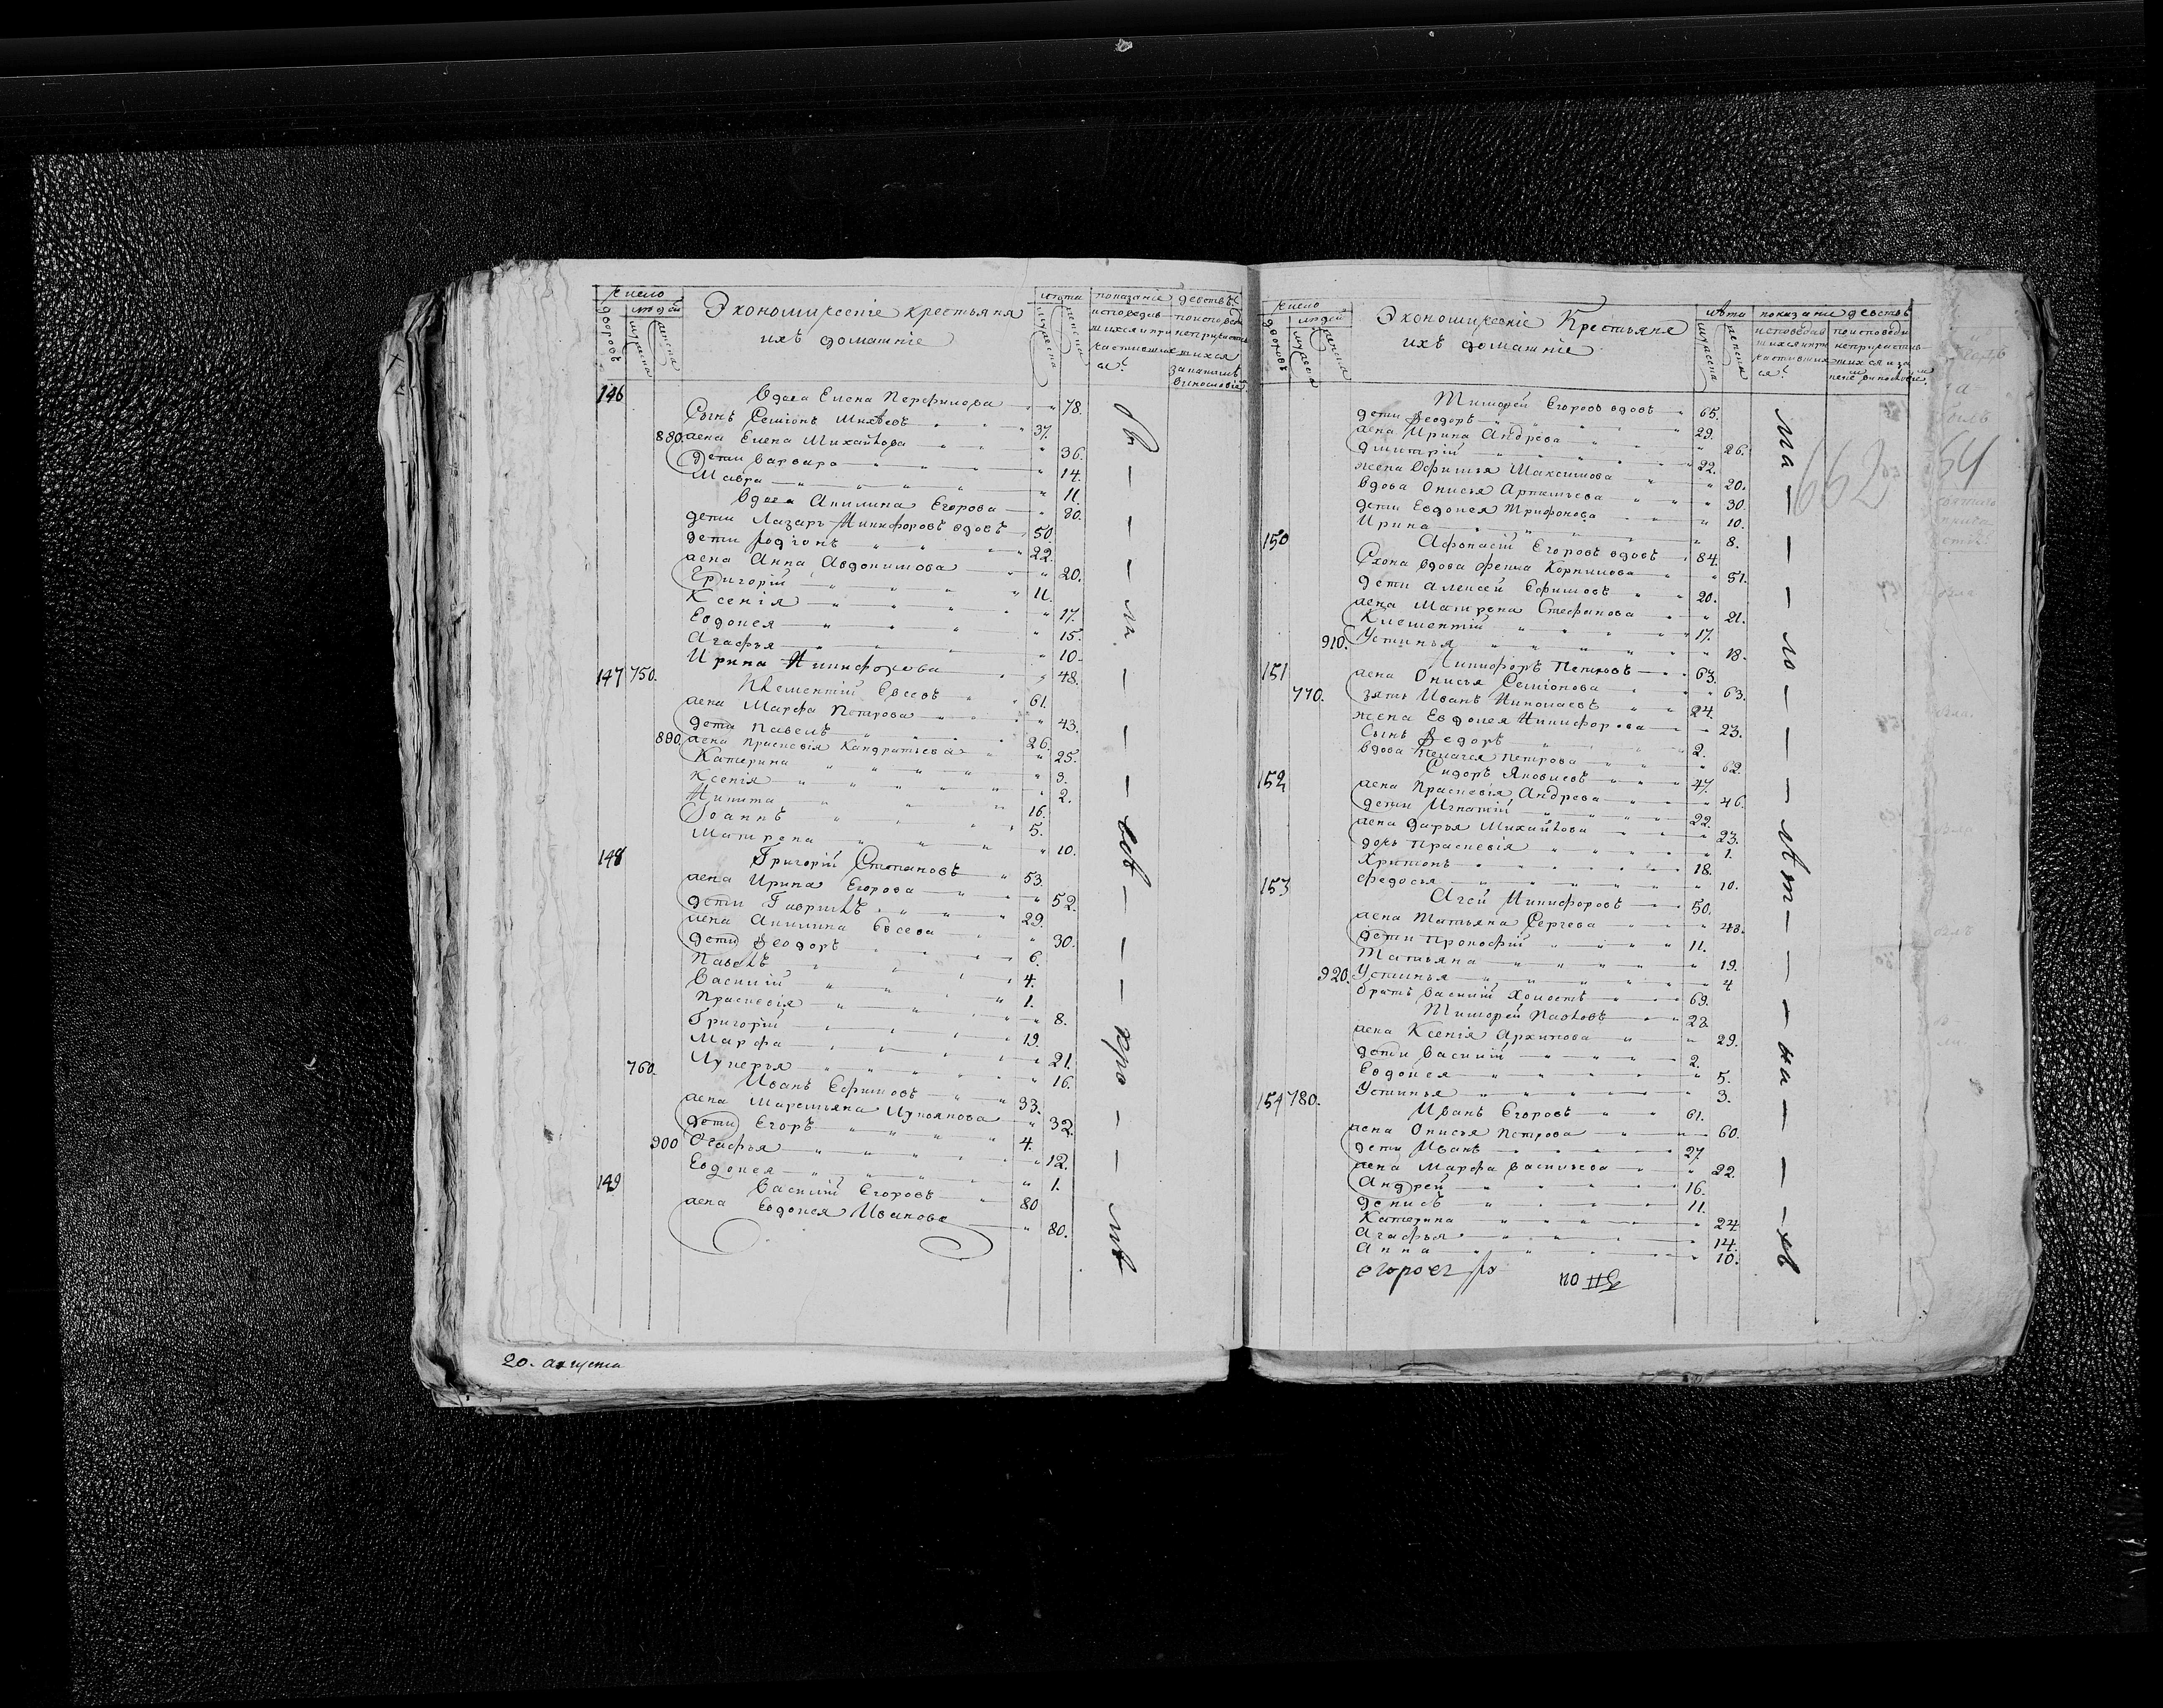 число
дворовъ
людей
мужеска
женска
Экономическіе крестьяня
ихъ домашніе
лѣта
мужеска
женска
показаніе действъ
исповедав
шихся и при
частивших
ся
по исповед
непричастив
шихся
146 Вдова Елена Перфилова 78.
Сынъ Семіонъ Михѣевъ 37.
880. жена Елена Михайлова 36.
дети Варвара 14.
Мавра 11.
Вдова Акилина Егорова 80.
дети Лазарь Никифоровъ вдовъ 50
дети Родіонъ 22.
жена Анна Авдокимова 20.
Григорій 11.
Ксенія 17.
Евдокея 15.
Агафья 10.
Ирина Никифорова 48.
147 750. Клементій Евсевъ 61.
жена Марфа Петрова 43.
дети Павелъ 26.
890. жена Прасковія Кандратьева 25.
Катерина 3.
Ксенія 2.
Никита 16.
Іоаннъ 5.
Матрена 10.
148 Григорій Степановъ 53.
жена Ирина Егорова 52.
дети Гаврилъ 29.
жена Акилина Евсева 30.
дети Феодоръ 6.
Павелъ 4.
Василій 1.
Прасковія 8.
Григорій 19.
Марфа 21.
760. Лукерья 16.
Иванъ Ефимовъ 33.
жена Маремьяна Лукоянова 32.
дети Егоръ 4.
900 Агафья 12.
Евдокея 1.
149 Василій Егоровъ 80
жена Евдокея Иванова 80.
20. августа
число
дворовъ
людей
мужеска
женска
Экономическіе Крестьяне
ихъ домашніе
лѣта
мужеска
женска
показаніе действъ
исповедав
шихся и при
частивших
ся
по исповеди
непричастив
шихся и за
Тимофей Егоровъ вдовъ 65.
дети Феодоръ 29.
жена Ирина Андрева 26.
Дмитрій 22.
жена Офимья Максимова 20.
Вдова Онисья Артемьева 30.
дети Евдокея Трифонова 10.
Ирина 8.
150 Афонасій Егоровъ вдовъ 84.
Сноха вдова Фекла Корнилова 51.
дети Алексей Ефимовъ 20.
жена Матрена Стефанова 21.
Клементій 17.
910. Устинья 18.
151 Никифоръ Петровъ 63.
жена Онисья Семіонова 63.
770. зять Иванъ Николаевъ 24.
жена Евдокея Никифорова 23.
Сынъ Федоръ 2.
вдова Пелагея Петрова 62.
152 Сидоръ Яковлевъ 47.
жена Прасковія Андрева 46.
дети Игнатій 22.
жена Дарья Михайлова 23.
дочь Прасковія 1.
Харитонъ 18.
Федосья 10.
153 Агей Никифоровъ 50.
жена Татьяна Сергева 48.
дети Прокофій 11.
Татьяна 19.
920. Устинья 4
братъ Василій Холостъ 69.
Тимофей Павловъ 28
жена Ксенія Архипова 29.
дети Василій 2.
Евдокея 5.
Устинья 3.
154 780. Иванъ Егоровъ 61.
жена Онисья Петрова 60.
дети Иванъ 27.
жена Марфа Васильева 22
Андрей 16.
Денисъ 11.
Катерина 24
Агафья 14.
Анна 10.
662
54